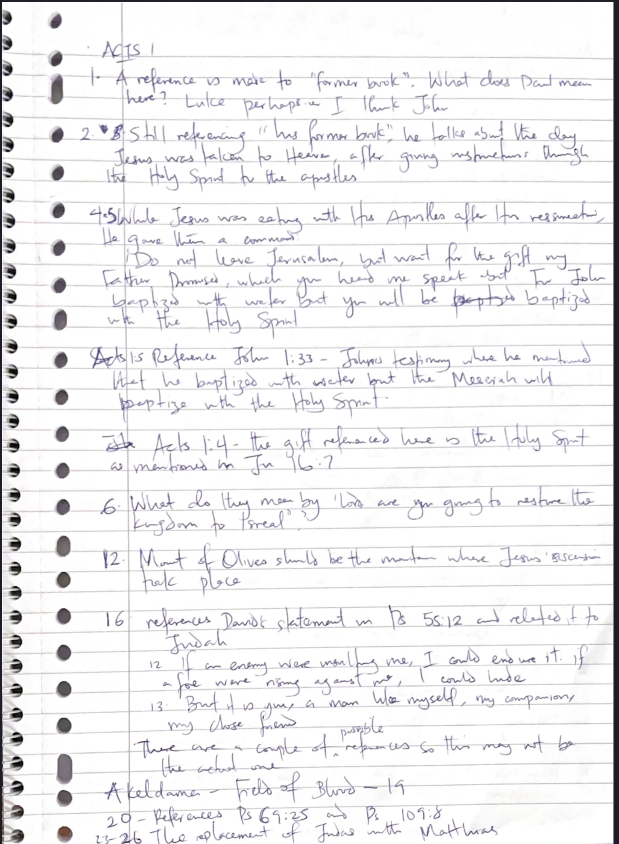 ACTS 1
1. A reference is made to "former book". What does Paul mean
here? Luke perhaps I think John
2. Still referencing "his former book", he talks about the day
Jesus was taken to Heaven, after giving instructions through
the Holy Spirit to the apostles
4-5 While Jesus was eating with His Apostles after His resurrection,
He gave them a command
"Do not leave Jerusalem, but wait for the gift my
Father Promised, which you heard me speak abt. For John
baptized with water but you will be baptized
with the Holy Spirit
Acts 1:5 Reference John 1:33 - John's testimony where he mentioned
that he baptized with water but the Messiah will
baptize with the Holy Spirit.
Acts 1:4 - the gift referenced here is the Holy Spirit
as mentioned in Jn 16:7
6. What do they mean by 'Lord are you going to restore the
kingdom to Israel'?
12. Mount of Olives should be the mountain where Jesus' ascension
took place
16 references David's statement in Ps 55:12 and related it to
Judah
12 If an enemy were insulting me, I could endure it. if
a foe were rising against me, I could hide
13. But it is you, a man like myself, my companion,
my close friend
There are a couple of possible references so this may not be
the actual one
Akeldama - Field of Blood - 19
20 - References Ps 69:25 and Ps 109:8
23-26 The replacement of Judas with Matthias